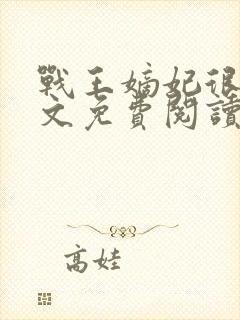 戰王嫡妃很
文免費閱讀
高娃